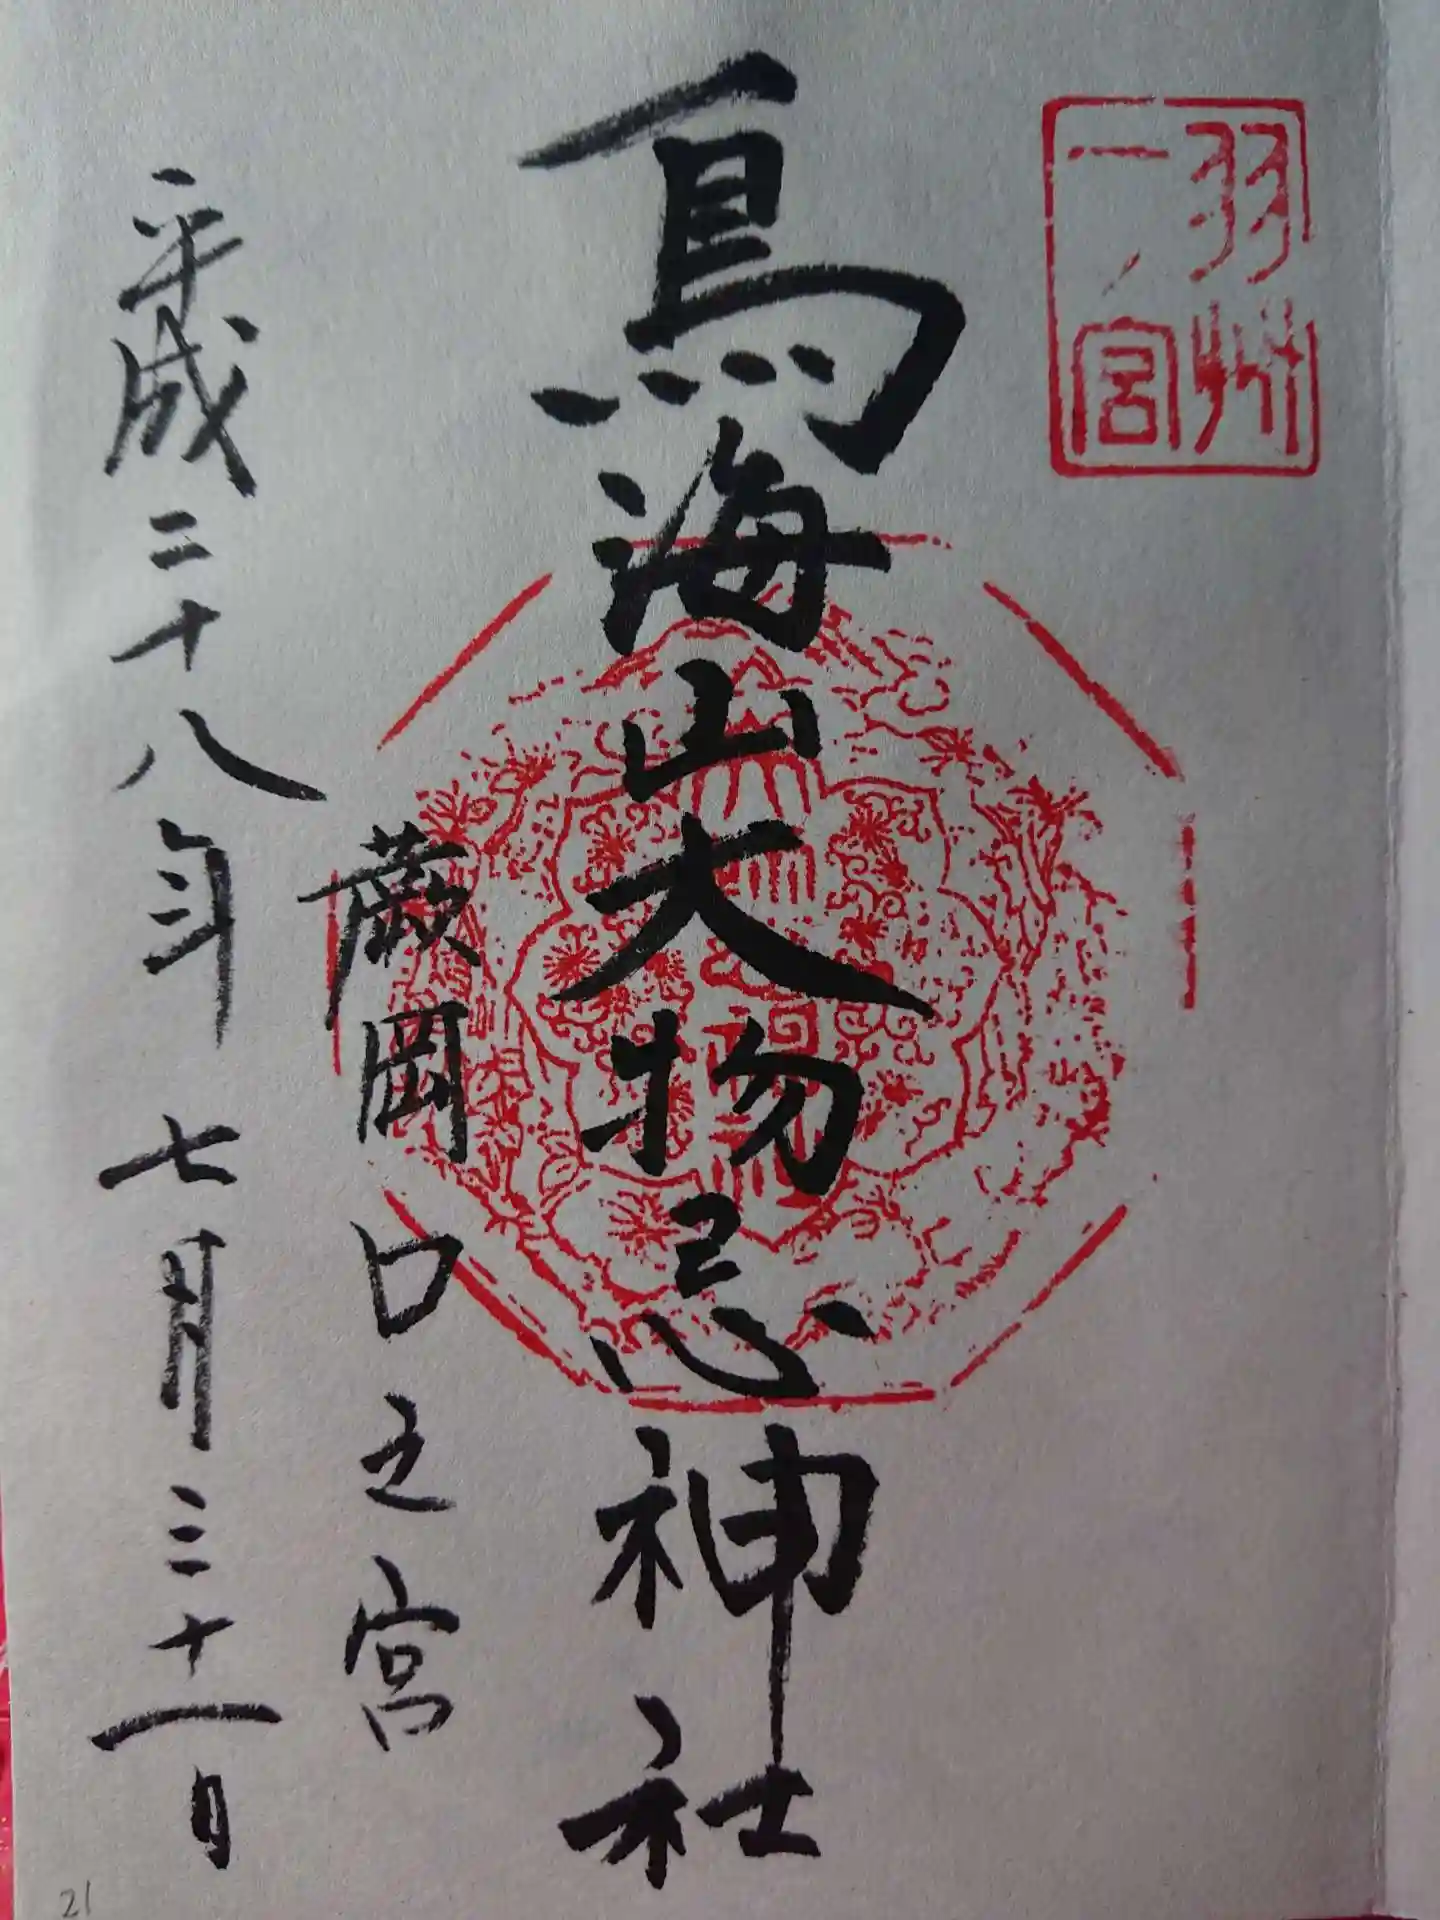 羽州
一ノ宮
鳥海山大物忌神社
蕨岡口之宮
平成二十八年七月三十一日
21